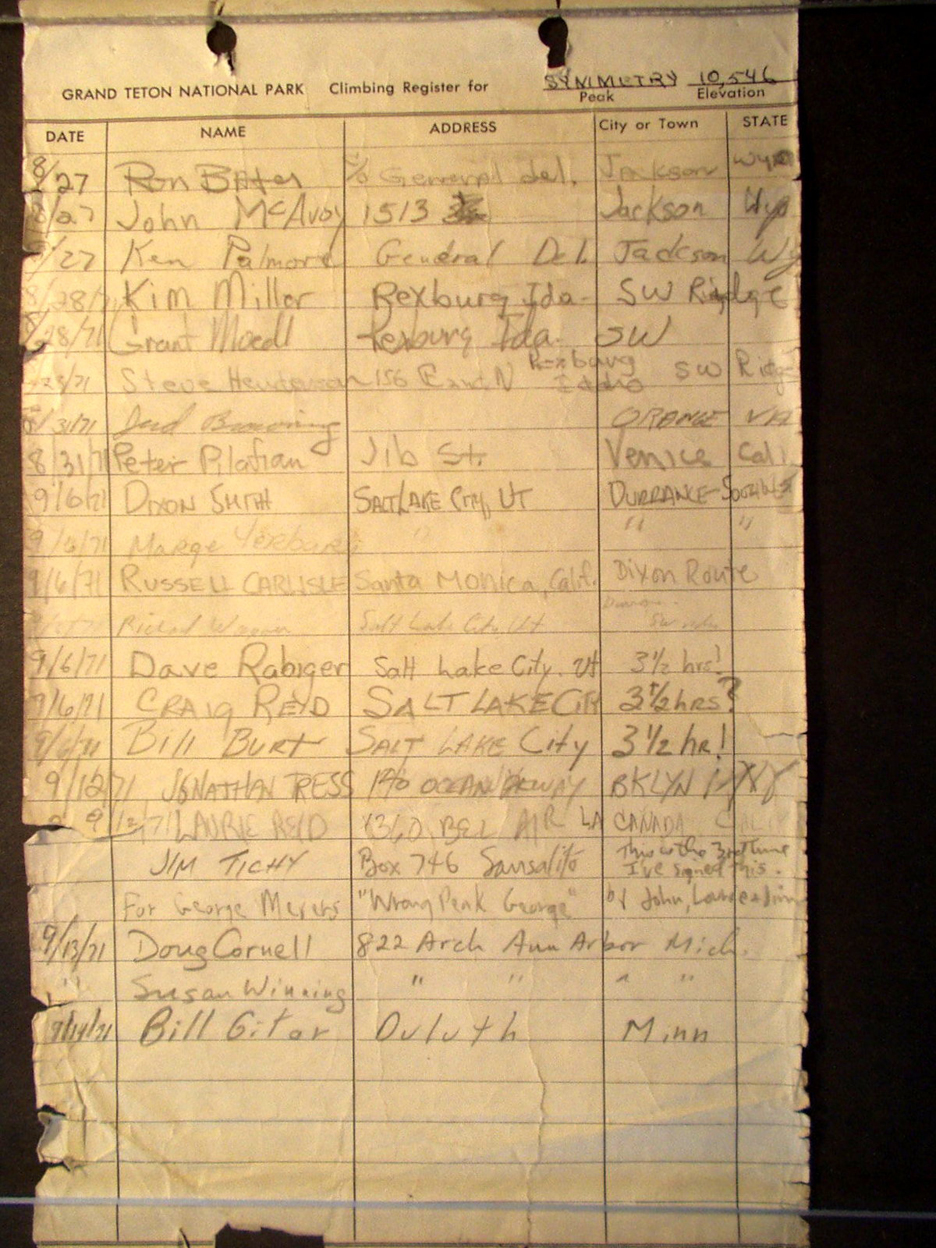 GRAND TETON NATIONAL PARK Climbing Register for SYMMETRY 10,546
Peak Elevation
DATE NAME ADDRESS City or Town STATE
8/27 Ron c/o General del. Jackson Wyo
8/27 John McAvoy 1513 Jackson Wyo
/27 Ken Palmore General Del. Jackson Wy
8/28/71 Kim Miller Rexburg Ida. SW Ridge
8/28/71 Grant Rexburg Ida. SW
/71 Steve Henderson 156 E Rexburg Idaho SW Ridge
8/31/71 ORANGE VA
8/31/71 Peter Pilafian Jib St. Venice Cali
9/6/71 DIXON SMITH SALT LAKE CITY, UT DURRANCE
9/6/71 Marge " " "
9/6/71 RUSSELL CARLISLE Santa Monica, Calif. Dixon Route
Richard Salt Lake City, Ut
9/6/71 Dave Rabiger Salt Lake City. Ut 3½ hrs!
9/6/71 CRAIG REYD SALT LAKE CITY 3½ hrs?
9/6/71 Bill BURT SALT LAKE City 3½ hr!
9/12/71 JONATHAN TRESS OCEAN PKWAY BKLYN NY
9/12/71 LAURIE REID 1360 BEL AIR LA CANADA CALIF
JIM TICHY Box 746 Sausalito This is the 3rd time I've signed this.
For George Meyers "Wrong Peak George" by John, Laurie & Jim
9/13/71 Doug Cornell 822 Arch Ann Arbor Mich.
" Susan Winning " " " "
9/14/71 Bill Gitar Duluth Minn